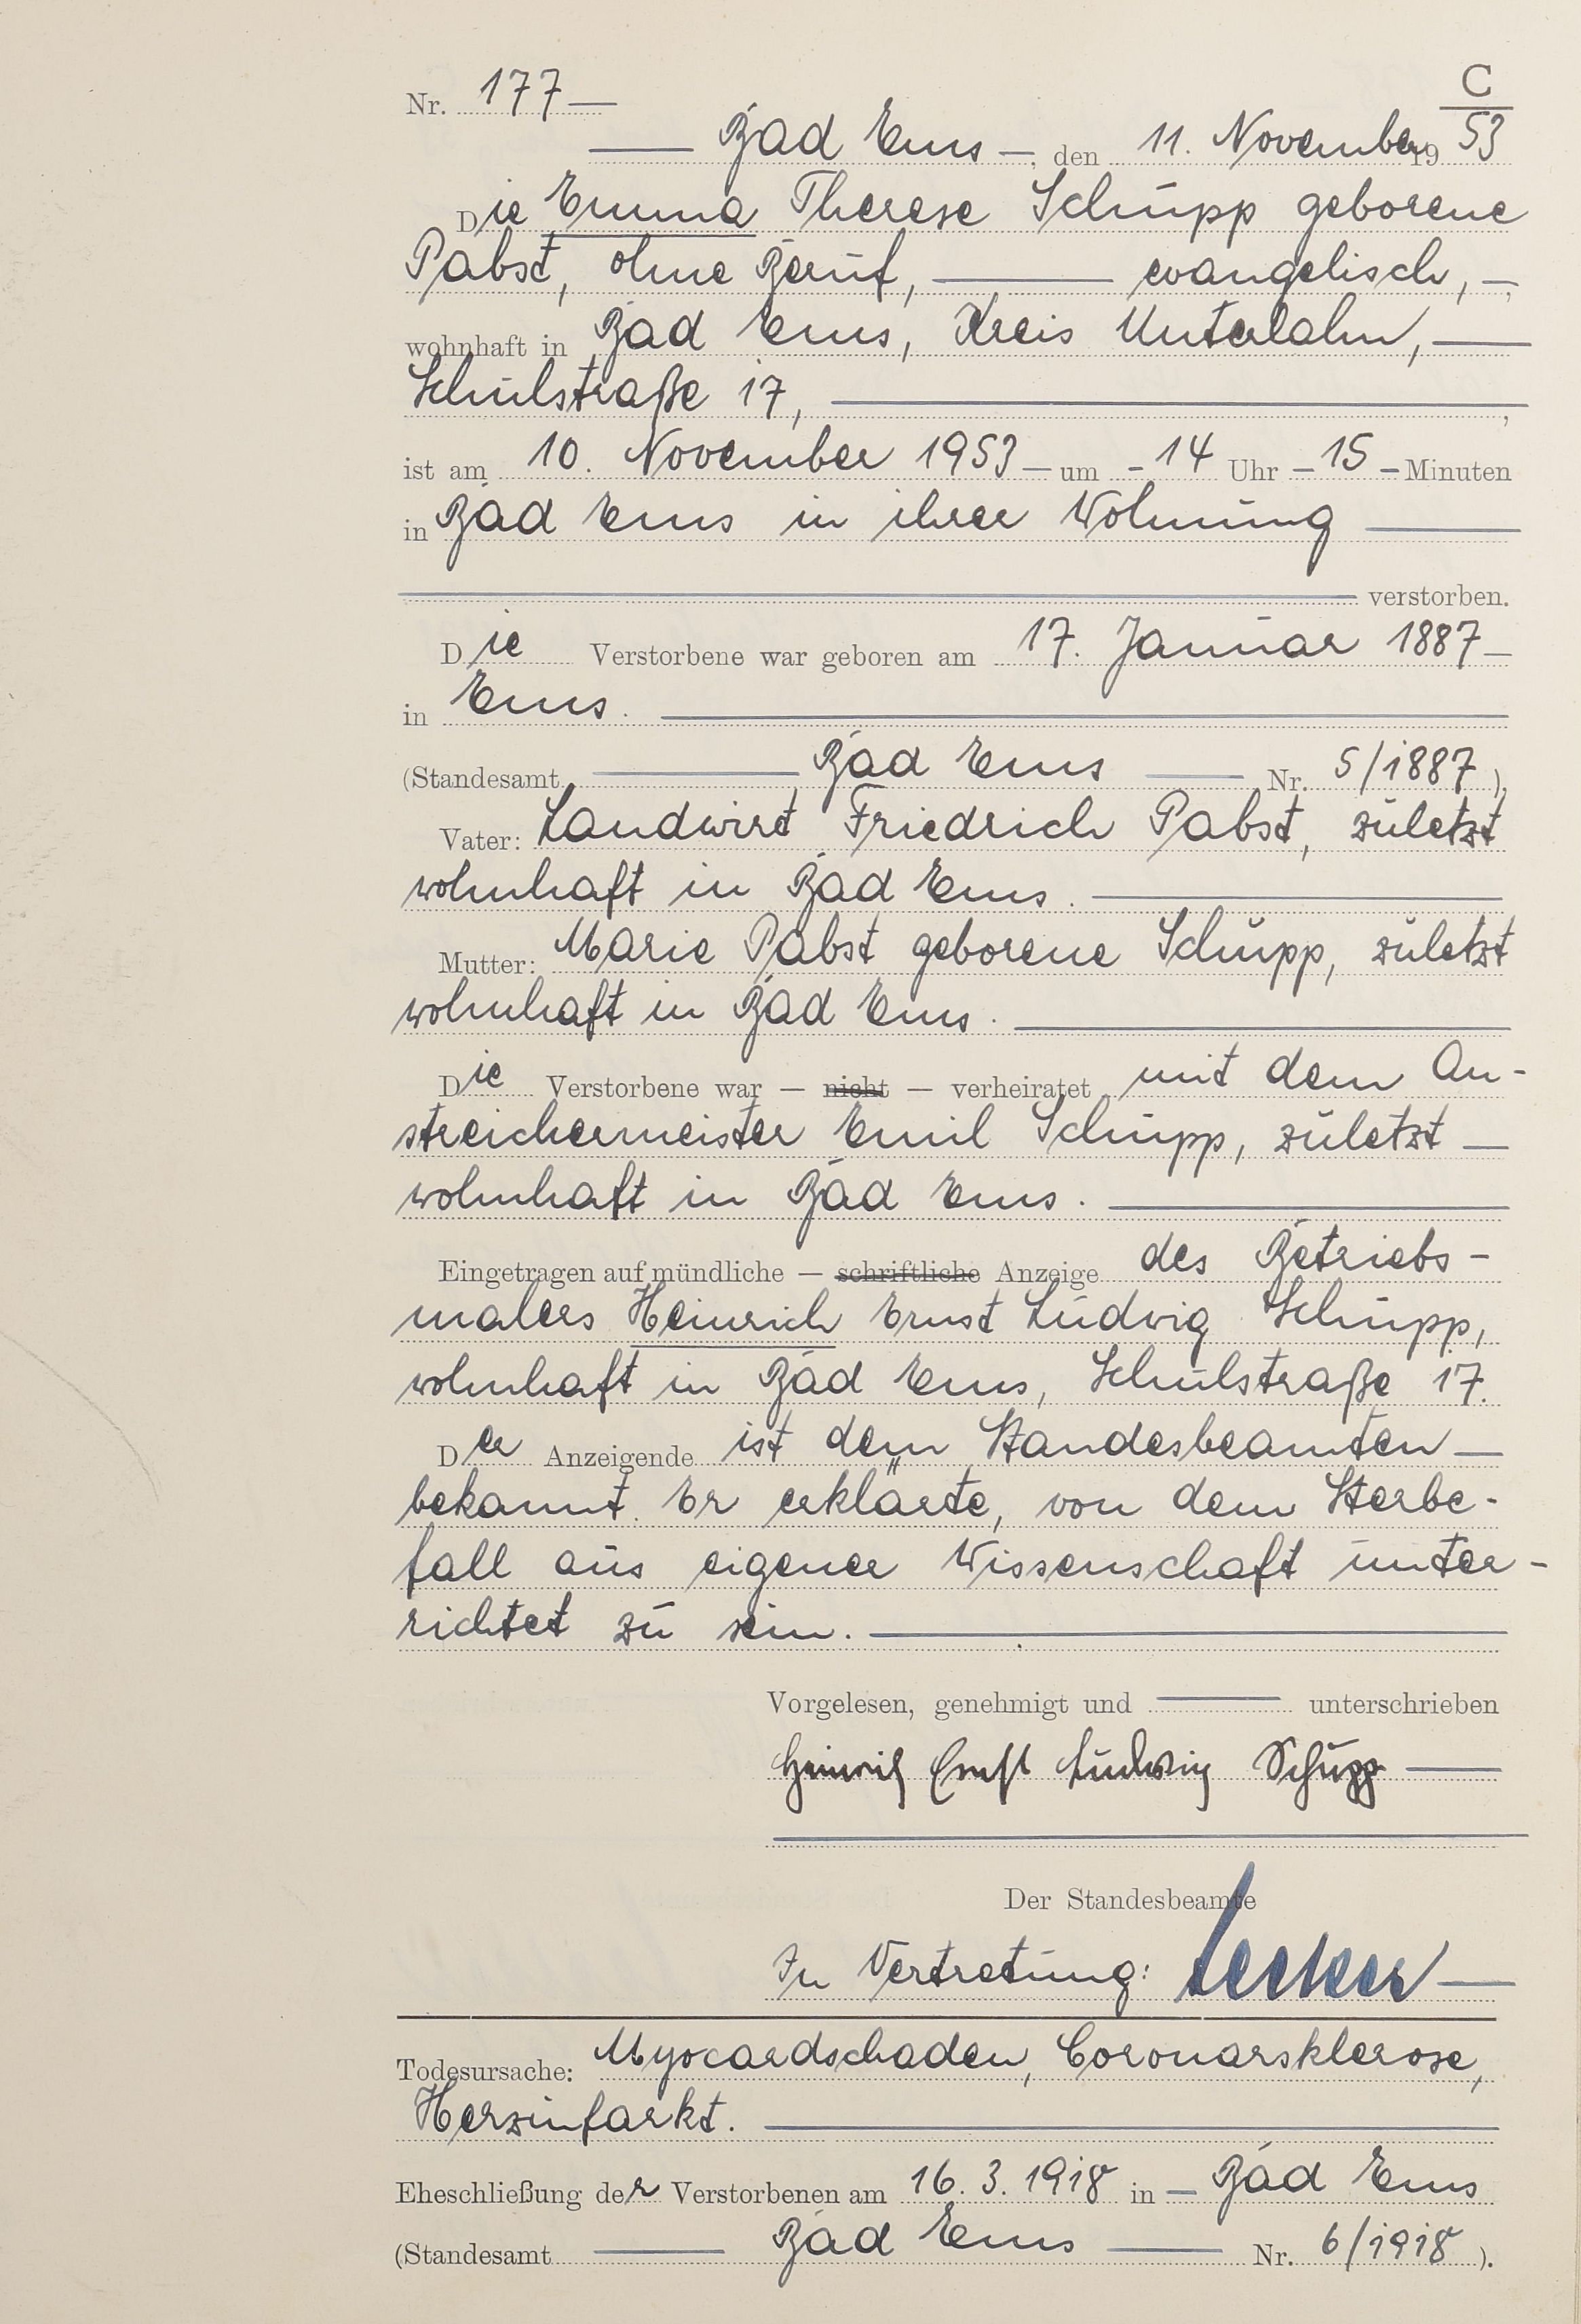 C
Nr. 177 —
— Bad Ems —, den 11. November 1953
Die Emma Therese Schupp geborene
Pabst, ohne Beruf, — evangelisch, —,
wohnhaft in Bad Ems, Kreis Unterlahn, —
Schulstraße 17, —,
ist am 10. November 1953 — um - 14 Uhr - 15 - Minuten
in Bad Ems in ihrer Wohnung —
— verstorben.
Die Verstorbene war geboren am 17. Januar 1887 —
in Ems. —
(Standesamt — Bad Ems — Nr. 5/1887 ),
Vater: Landwirt Friedrich Pabst, zuletzt
wohnhaft in Bad Ems. —
Mutter: Marie Pabst geborene Schupp, zuletzt
wohnhaft in Bad Ems. —
Die Verstorbene war — nicht — verheiratet mit dem An-
streichermeister Emil Schupp, zuletzt —
wohnhaft in Bad Ems. —
Eingetragen auf mündliche — schriftliche Anzeige des Betriebs-
malers Heinrich Ernst Ludwig Schupp,
wohnhaft in Bad Ems, Schulstraße 17.
Der Anzeigende ist dem Standesbeamten —
bekannt. Er erklärte, von dem Sterbe-
fall aus eigener Wissenschaft unter-
richtet zu sein. —
Vorgelesen, genehmigt und — unterschrieben
Heinrich Ernst Ludwig Schupp —
Der Standesbeamte
In Vertretung: —
Todesursache: Myocardschaden, Coronarsklerose,
Herzinfarkt. —
Eheschließung der Verstorbenen am 16. 3. 1918 in — Bad Ems
(Standesamt — Bad Ems — Nr. 6/1918 ).